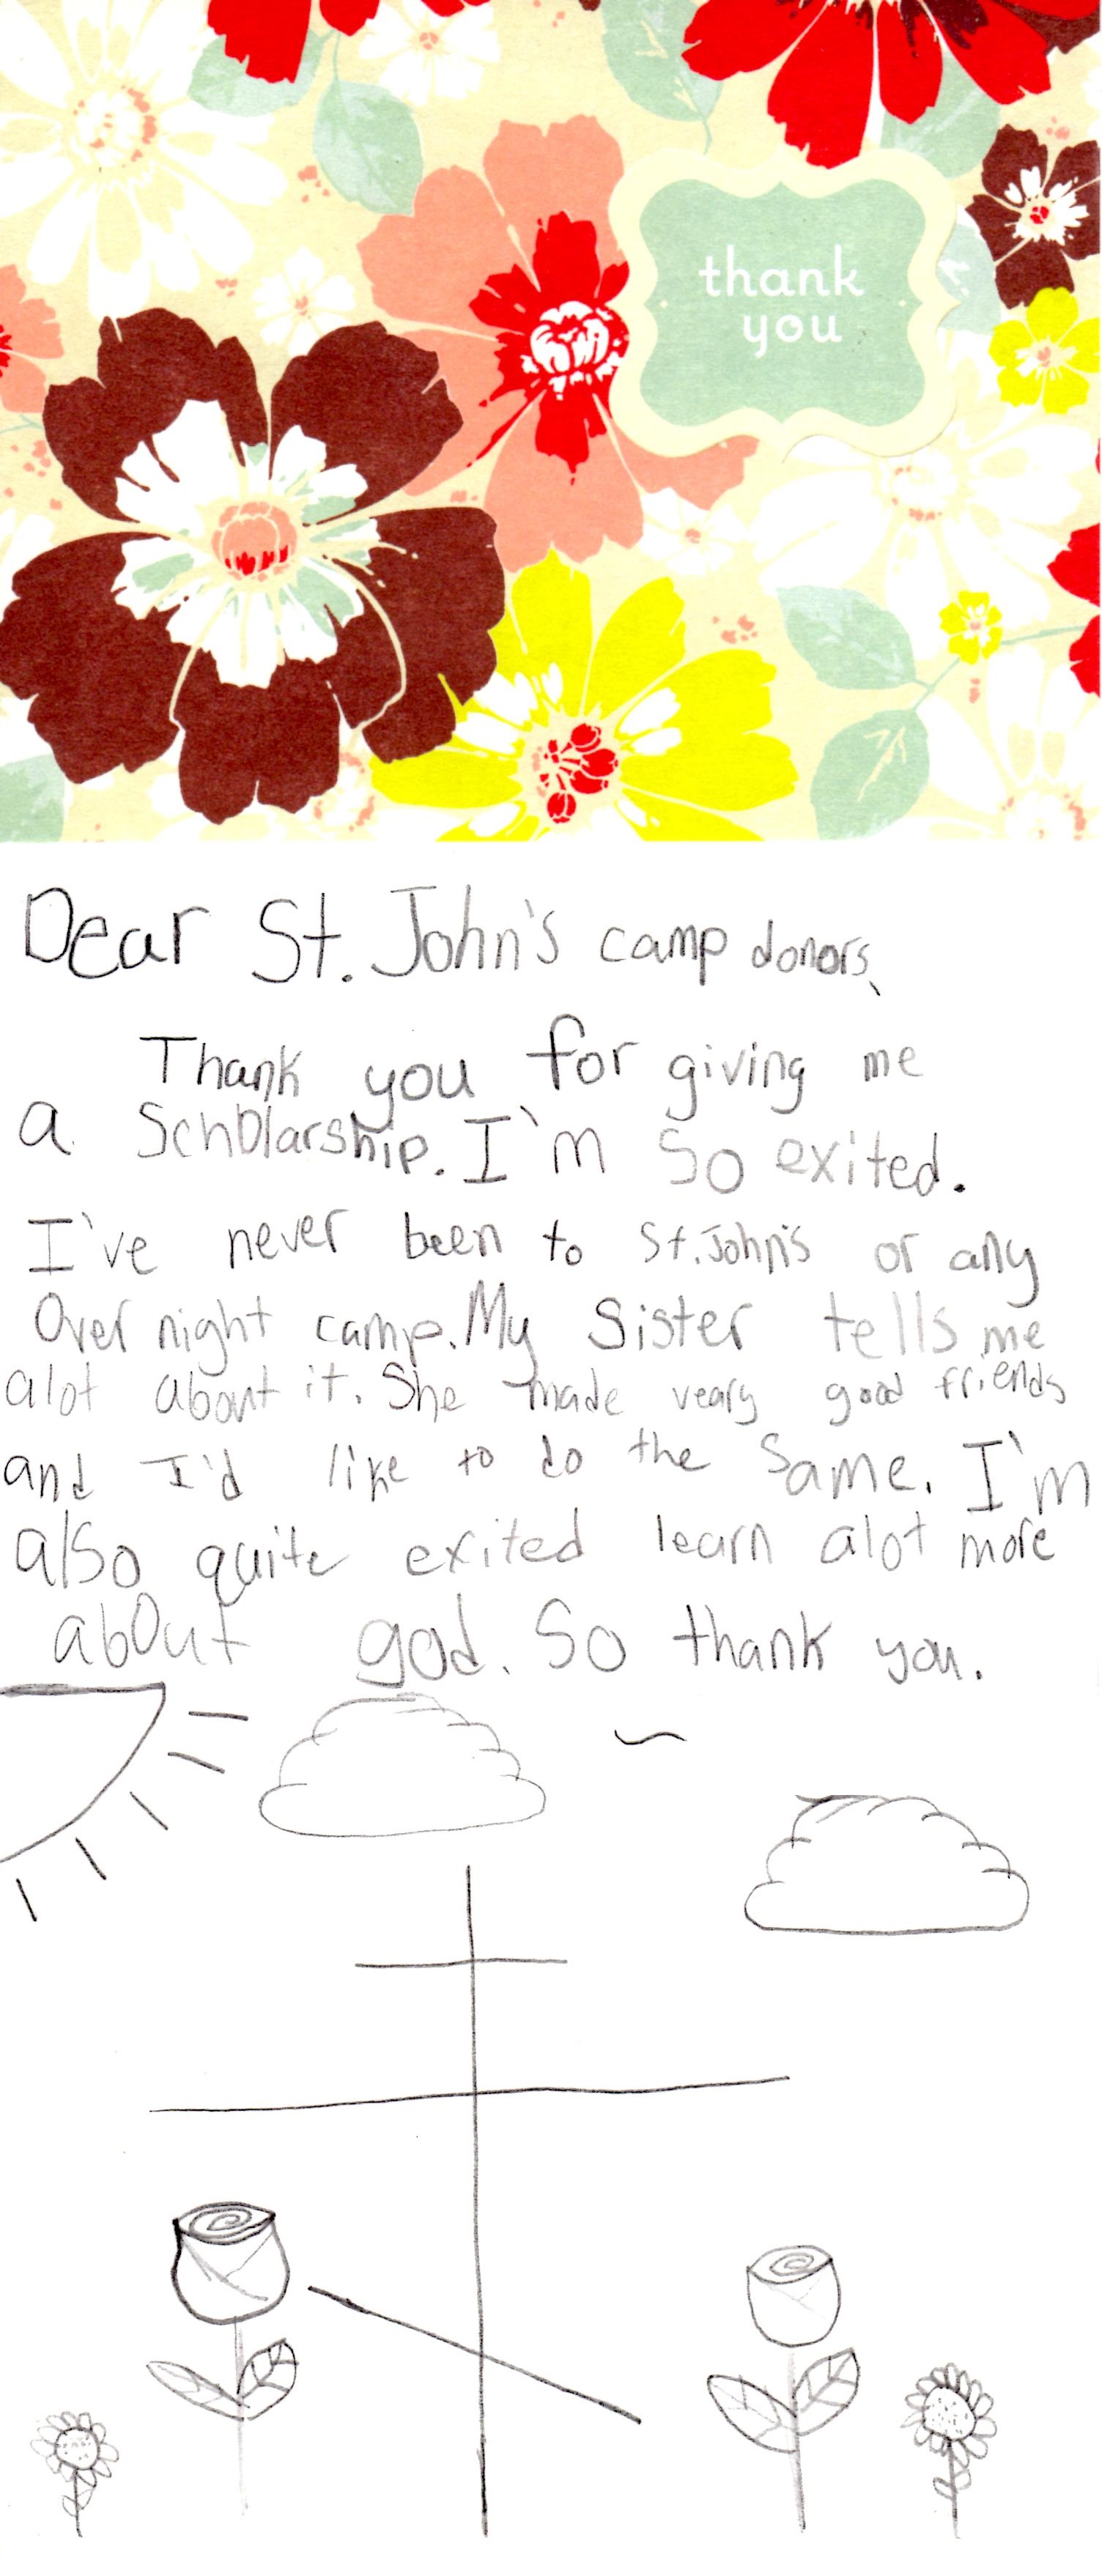 thank
you
Dear St. John's camp donors,
Thank you for giving me
a Scholarship. I'm so exited.
I've never been to St. John's or any
Over night camp. My Sister tells me
alot about it. She made veary good friends
and I'd like to do the same. I'm
also quite exited learn alot more
about god. So thank you.